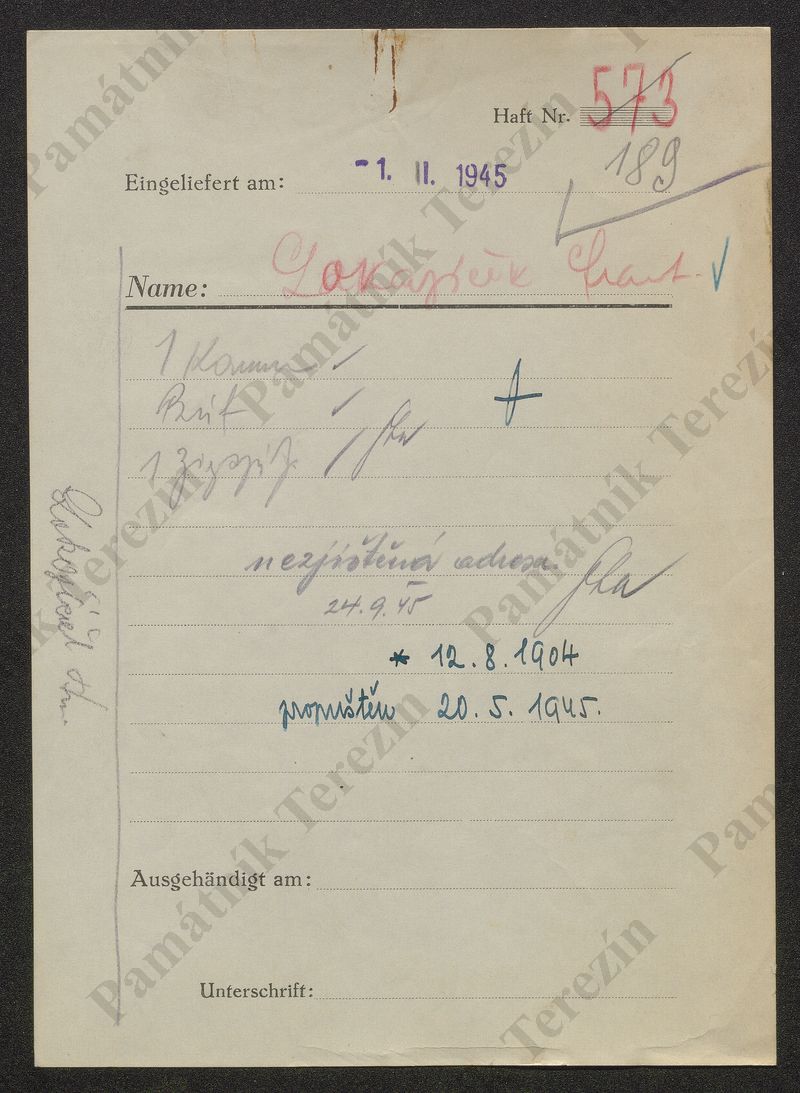 Haft Nr. 573
189
Eingeliefert am: -1. II. 1945
Name: Lokajíček Frant.
1 Kamm
1
nezjištěná adresa
24.9.45
* 12.8.1904
propuštěn 20.5.1945.
Ausgehändigt am:
Unterschrift:
Památník Terezín
Památník Terezín
Památník Terezín
Památník Terezín